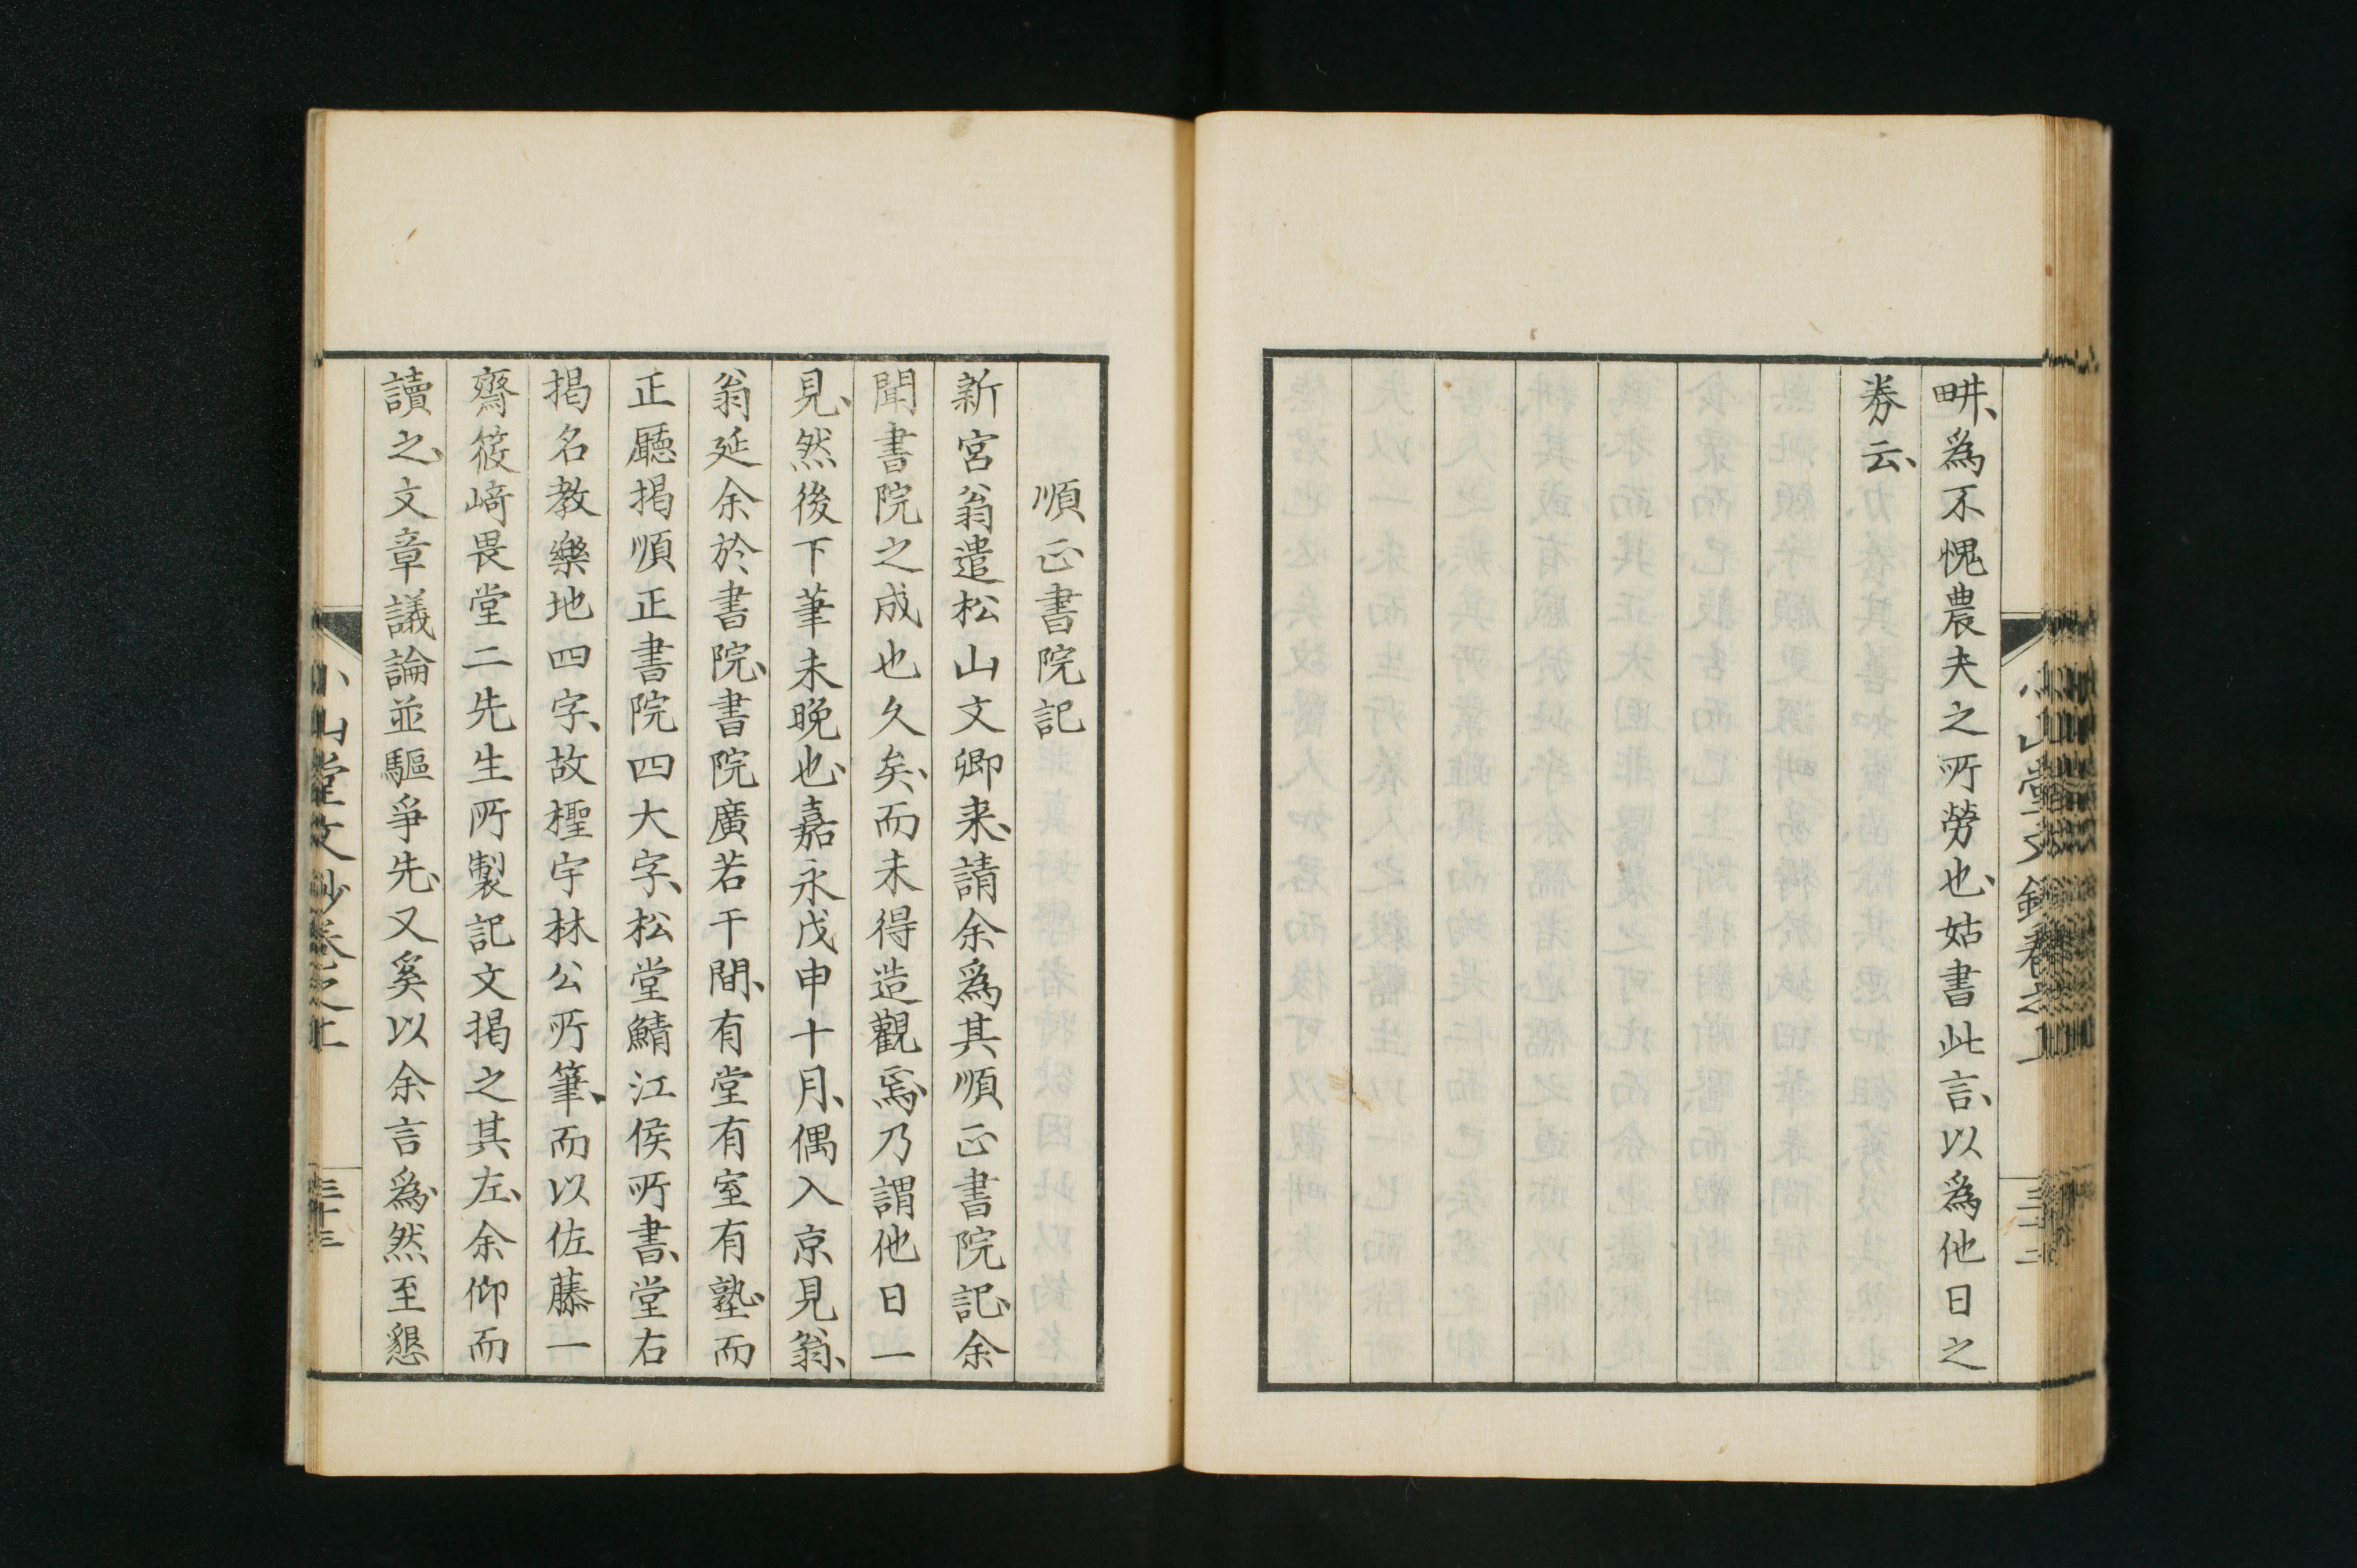 畊、為不愧農夫之所勞也、姑書此言、以為他日之
券云、
順正書院記
新宮翁遣松山文卿来、請余為其順正書院記、余
聞書院之成也久矣、而未得造觀焉、乃謂他日一
見、然後下筆未晚也、嘉永戊申十月、偶入京見翁、
翁延余於書院、書院廣若干間、有堂有室有塾、而
正廳揭順正書院四大字、松堂鯖江侯所書、堂右
揭名教樂地四字、故檉宇林公所筆、而以佐藤一
齋筱﨑畏堂二先生所製記文揭之其左、余仰而
讀之、文章議論並驅爭先、又奚以余言為、然至懇
小山堂文鈔卷之上
三十三